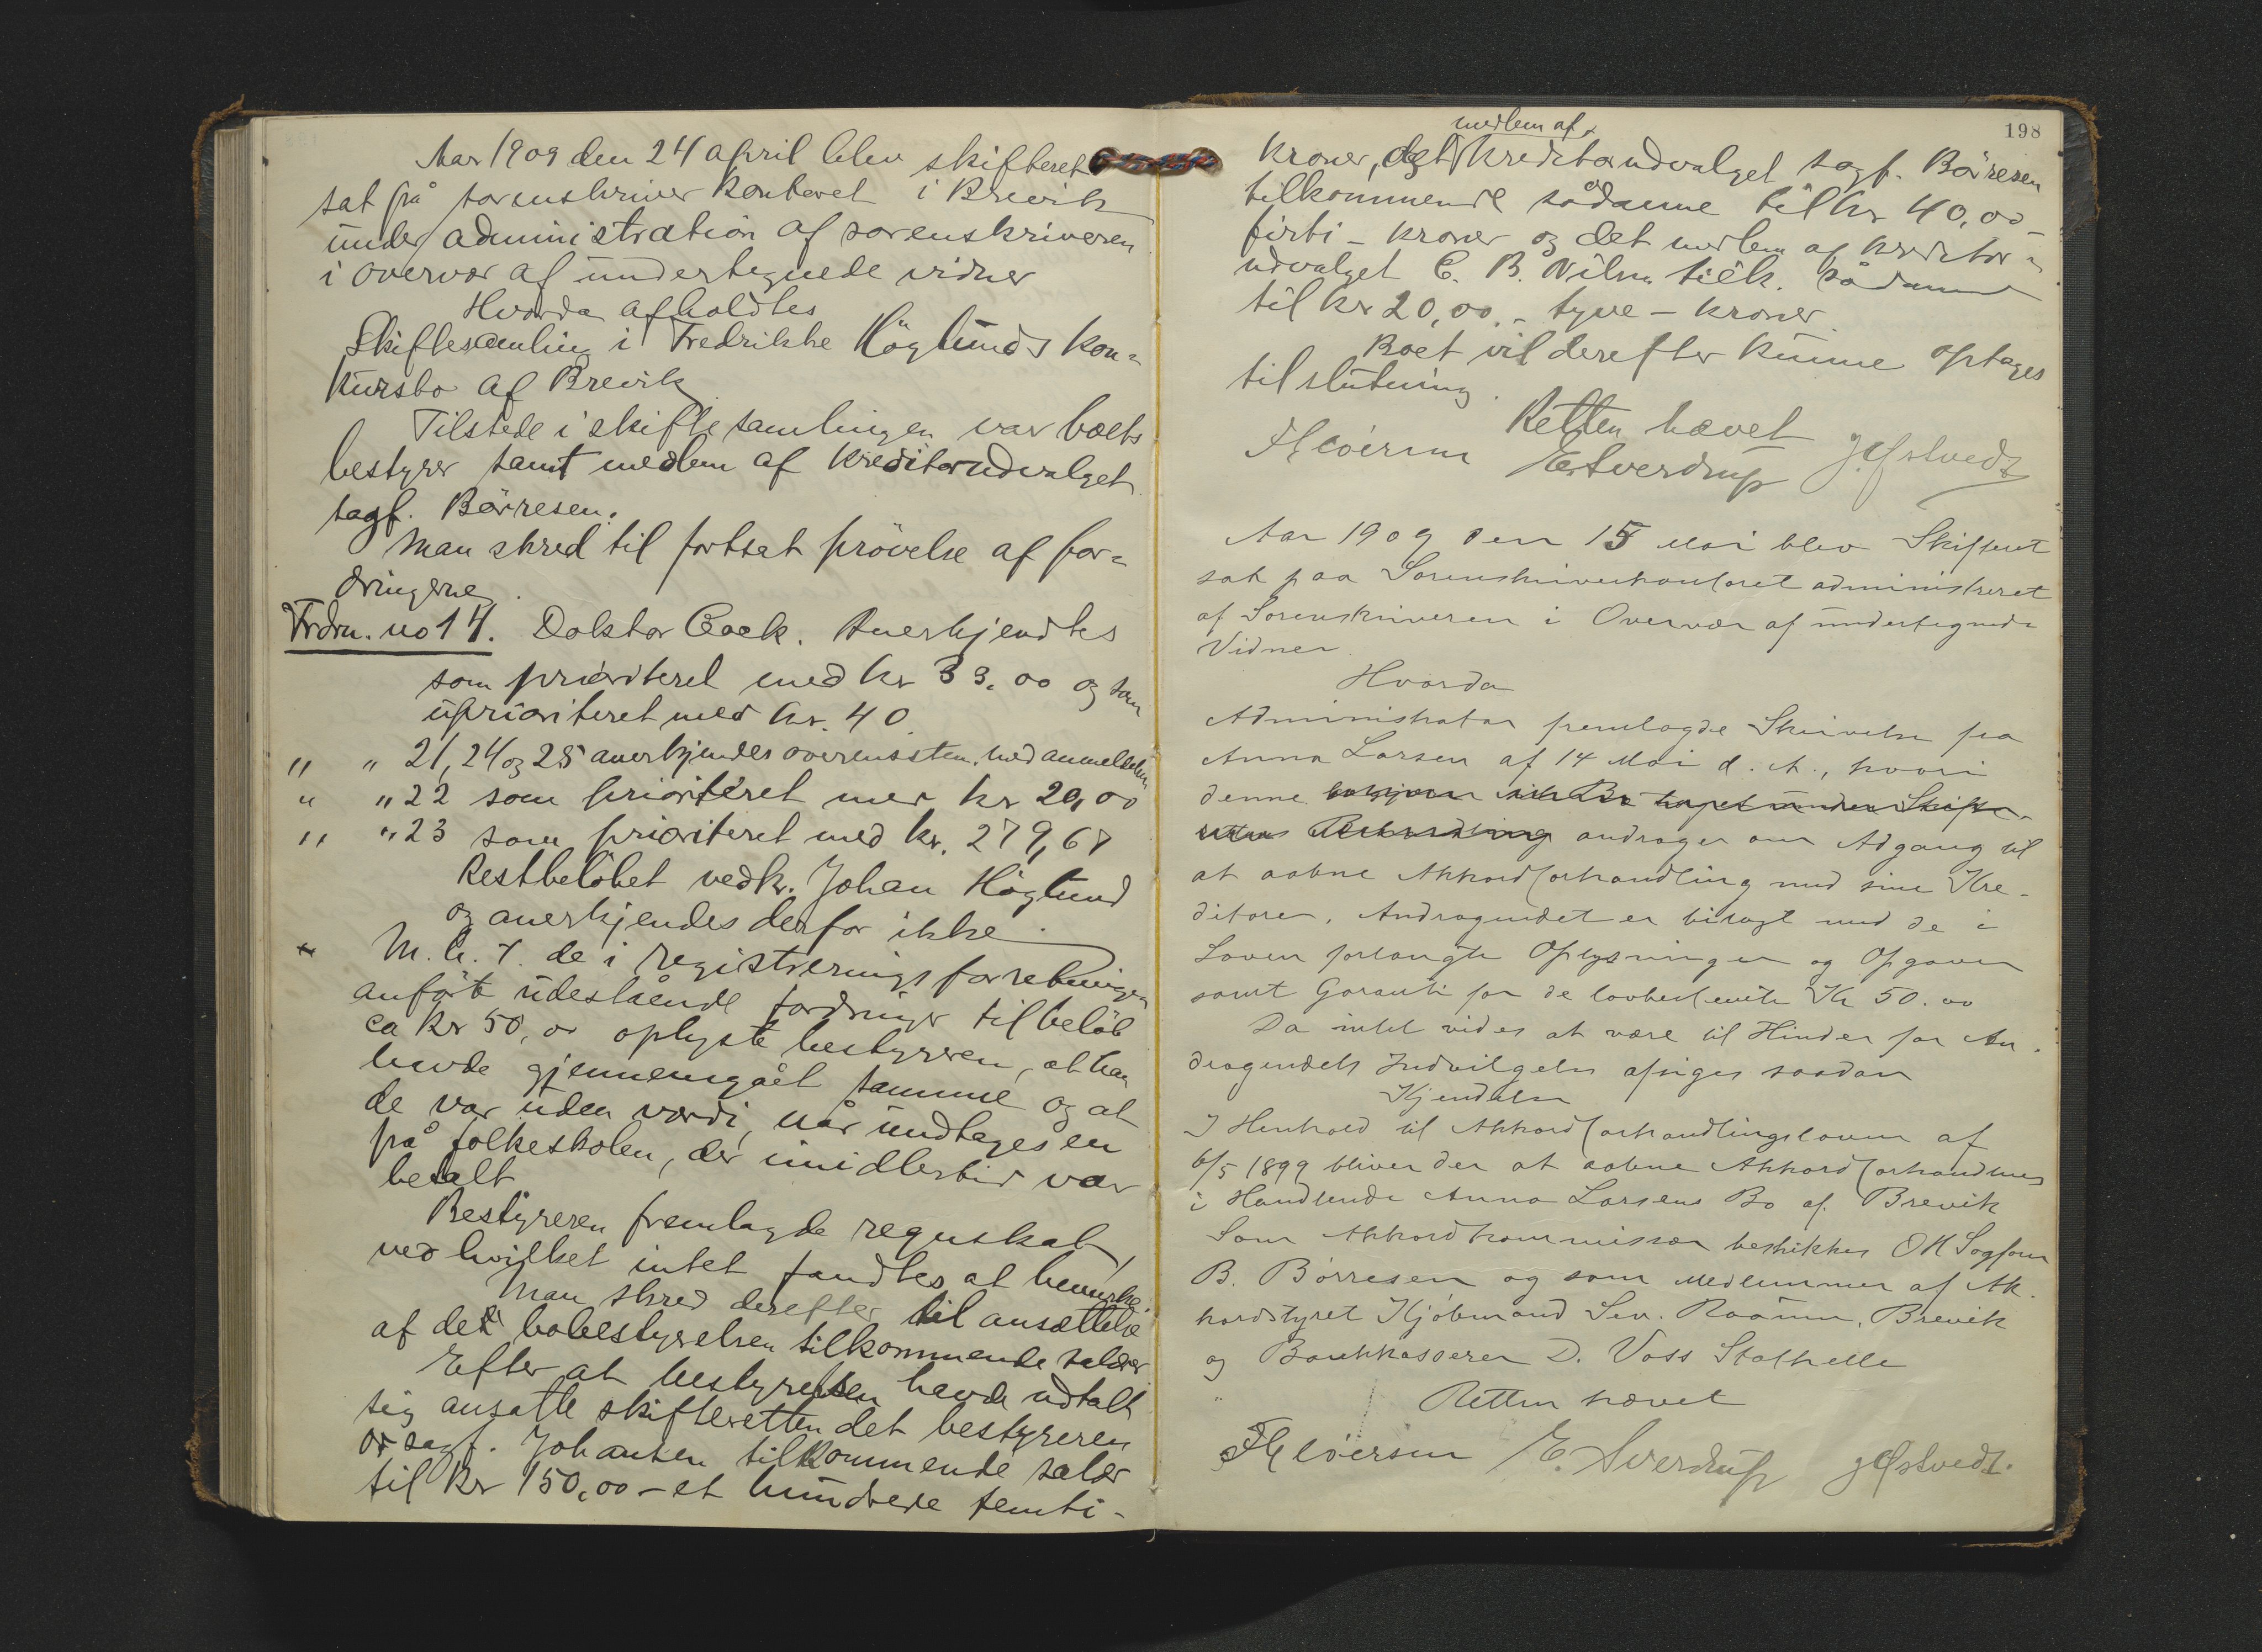 Aar 1909 den 24 april blev skifteret
sat på sorenskriver kontoret i Brevik
under administration af sorenskriveren
i overvær af undertegnede vidner
Hvorda afholdtes
Skiftesamling i Fredrikke Höglunds kon=
kursbo af Brevik
Tilstede i skiftesamlingen var boets
bestyrer samt medlem af kreditorudvalget
sagf. Börresen.
Man skred til fortsat prövelse af for=
dringerne.
Frdrn. no 14. Doktor Cock. Anerkjendtes
som prioriteret med kr 33,00 og som
uprioriteret med kr. 40
" " 21, 24 og 25 anerkjendes overensstem. med anmeldelsen
" " 22 som prioriteret med kr 20,00
" " 23 som prioriteret med kr. 279,67
Restbelöbet vedk. Johan Höglund
og anerkjendes derfor ikke.
M. h. t. de i registreringsforretningen
anförte udestående fordringer til belöb
ca kr 50,00 oplyste bestyreren, at han
havde gjennemgået samme og at
de var uden værdi, når undtages en
på folkeskolen, der imidlertid var
betalt
Bestyreren fremlagde regnskab,
ved hvilket intet fandtes at bemerke.
Man skred derefter til ansættelse
af det bobestyrelsen tilkommende salær
Efter at bestyrelsen havde udtalt
sig ansatte skifteretten det bestyreren
sagf. Johansen tilkommende salær
til kr 150,00 - et hundrede femti -
198
medlem af
kroner, det kreditorudvalget sagf. Börresen
tilkommende sådanne til kr 40,00 -
förti - kroner og det medlem af kreditor=
udvalget C. B. Nilsen tilk. sådanne
til kr 20,00 - tyve - kroner.
Boet vil derefter kunne optages
til slutning.
Retten hævet
E. Sverdrup
Aar 1909 den 15 Mai blev Skifteret
sat paa Sorenskriverkontoret administreret
af Sorenskriveren i Overvær af undertegnede
Vidner.
Hvorda
Administrator fremlagde Skrivelse fra
Anna Larsen af 14 Mai d. A., hvori
denne begjærer sit Bo taget under Skifte-
rettens Behandling andrager om Adgang til
at aabne Akkordforhandling med sine Kre-
ditorer. Andragendet er bilagt med de i
Loven forlangte Oplysninger og Opgaver
samt Garanti for de lovbestemte Kr 50.00
Da intet vides at være til Hinder for An-
dragendets Indvilgelse afsiges saadan
Kjendelse
I Henhold til Akkordforhandlingsloven af
6/5 1899 bliver der at aabne Akkordforhandling
i Handlende Anna Larsens Bo af Brevik
Som Akkordkommissær beskikkes O R Sagfører
B. Börresen og som Medlemmer af Ak-
kordstyret Kjöbmand Sev. Raanum, Brevik
og Bankkasserer D. Voss Stathelle
Retten hævet
E. Sverdrup